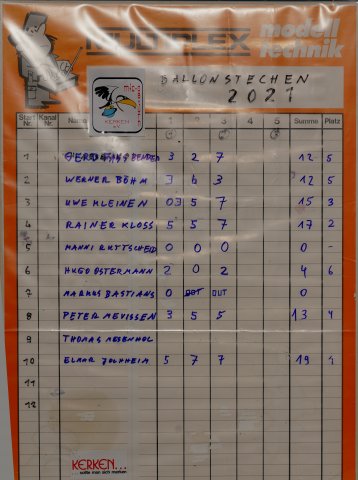 MULTIPLEX modell technik
BALLONSTECHEN
2021
KERKEN
Start Nr. Kanal Nr. Name 1 2 3 4 5 Summe Platz
1 BENDEN 3 2 7 12 5
2 WERNER BÖHM 3 6 3 12 5
3 UWE KLEINEN 03 5 7 15 3
4 RAINER KLOSS 5 5 7 17 2
5 MANNI RUTTSCHEID 0 0 0 0 -
6 HUGO OSTERMANN 2 0 2 4 6
7 MARKUS BASTIANS 0 OUT OUT
8 PETER MEVISSEN 3 5 5 13 4
9 THOMAS
10 ELMAR 5 7 7 19 1
11
12
KERKEN...